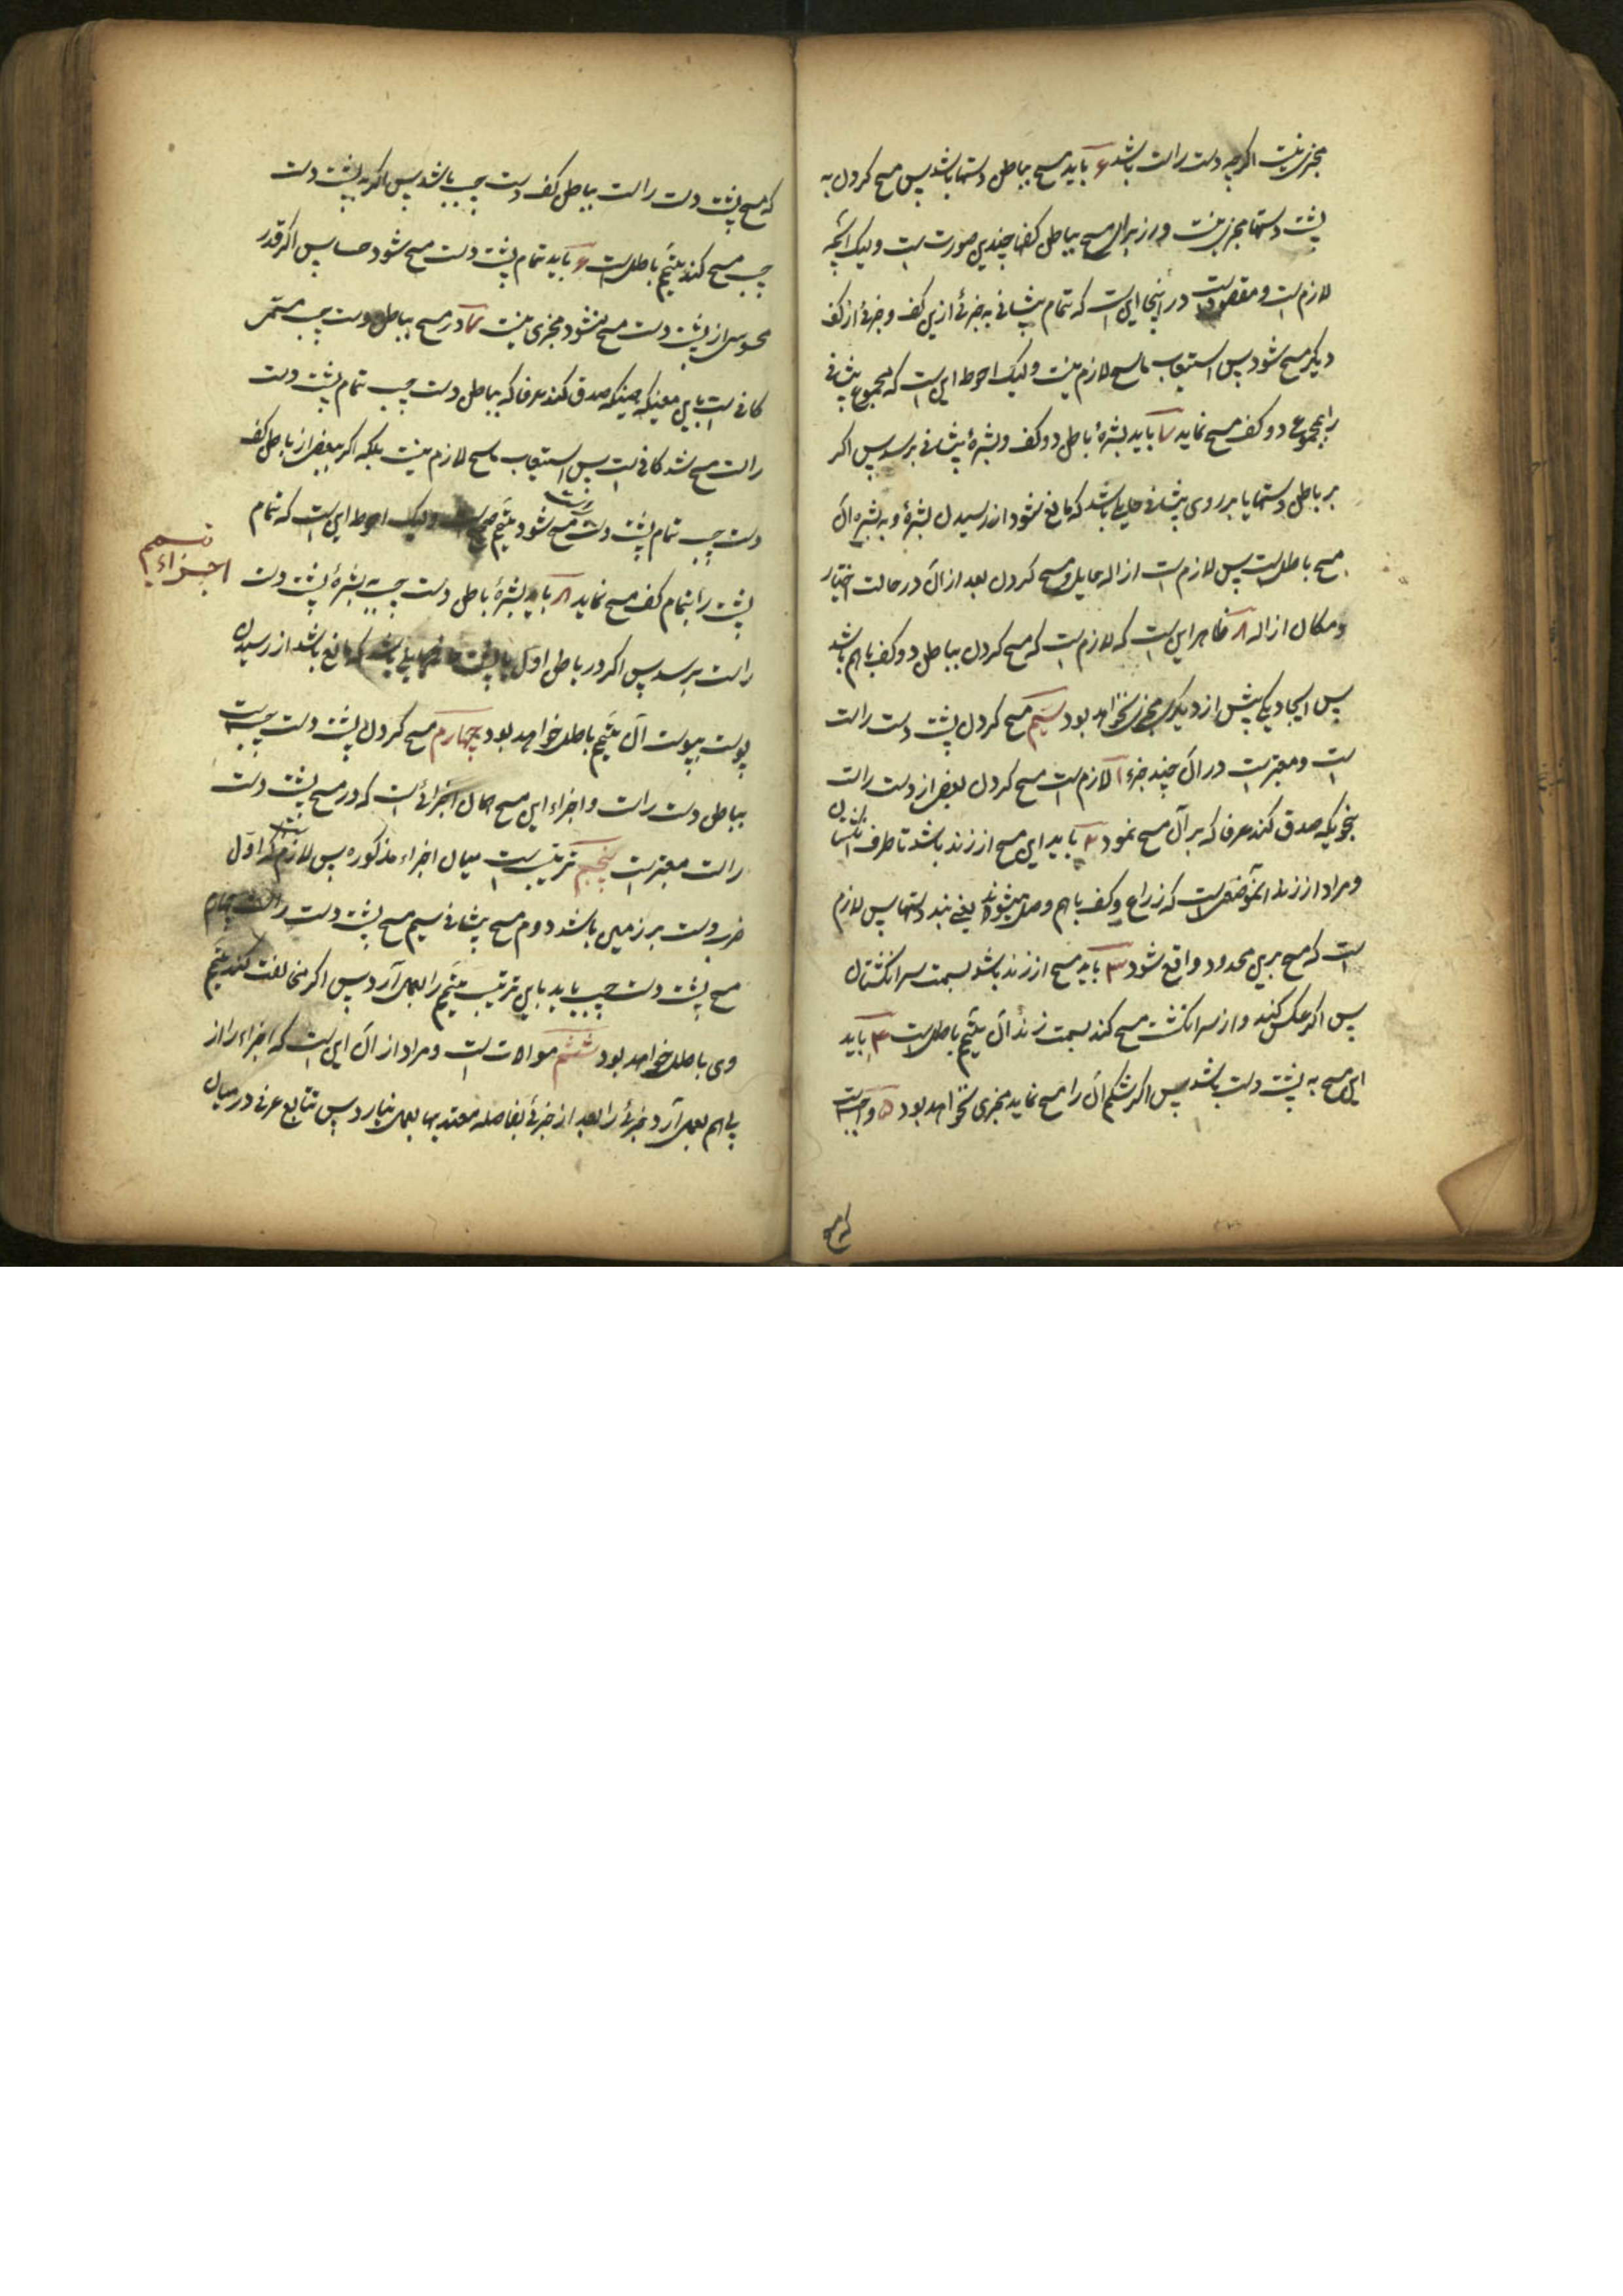 مجزی نیست اگرچه دست راست باشد ۶ باید مسح بباطن دستها باشد پس مسح کردن به
پشت دستها مجزی نیست و از برای مسح بباطن کفها چندین صورت است و لیک آنچه
لازم است و مقصود است در اینجا این است که تمام پیشانی به جزئی ازین کف و جزئی از کف
دیگر مسح شود پس استیعاب ماسح لازم نیست و لیک احوط این است که مجموع پیشانی
را بمجموع دو کف مسح نماید ۷ باید بشرهٔ باطن دو کف و بشرهٔ پیشانی برسد پس اگر
بر باطن دستها یا بر روی پیشانی حایلی باشد که مانع شود از رسیدن بشرهٔ و به بشره آن
مسح باطل است پس لازم است ازاله حایل و مسح کردن بعد از آن در حالت اختیار
و مکان ازاله ۸ ظاهر این است که لازم است که مسح کردن بباطن دو کف باهم باشد
پس ایجاد یکی پیش از دیگری مجزی نخواهد بود سیّم مسح کردن پشت دست راست
است و معتبر است در آن چند جزء ۱ لازم است مسح کردن بعض از دست راست
بنحویکه صدق کند عرفا که بر آن مسح نمود ۲ باید این مسح از زند باشد تا طرف انگشتان
و مراد از زند آنموضعی است که زراع و کف باهم وصل میشوند یعنی بند دستها پس لازم
است که مسح برین محدود واقع شود ۳ باید مسح از زند باشد بسمت سر انگشتان
پس اگر عکس کند و از سر انگشت مسح کند بسمت زند آن تیمّم باطل است ۴ باید
این مسح به پشت دست باشد پس اگر شکم آن را مسح نماید مجزی نخواهد بود ۵ واجبست
که مسح
که مسح پشت دست راست بباطن کف دست چپ باشد پس اگر به پشت دست
چپ مسح کند تیمّم باطل است ۶ باید تمام پشت دست مسح شود حسا پس اگر قدر
محسوسی از پشت دست مسح نشود مجزی نیست ۷ در مسح بباطن دست چپ مسمّی
کافی است باین معنی که همینکه صدق کند عرفا که بباطن دست چپ تمام پشت دست
راست مسح شد کافی است پس استیعاب ماسح لازم نیست بلکه اگر ببعض از باطن کف
دست چپ تمام پشت دست راست مسح شود تیمّم صحیح است و لیک احوط این است که تمام
پشت را بتمام کف مسح نماید ۸ باید بشرهٔ باطن دست چپ به بشرهٔ پشت دست
راست برسد پس اگر در باطن اول یا پشت ثانی حایلی باشد که مانع باشد از رسیدن
پوست بپوست آن تیمّم باطل خواهد بود چهارم مسح کردن پشت دست چپست
بباطن دست راست و اجزاء این مسح همان اجزائی است که در مسح پشت دست
راست معتبر است پنجم ترتیب است میان اجزاء مذکوره پس لازم است که اوّل
ضرب دست بر زمین باشد دوم مسح پیشانی سیم مسح پشت دست راست چهارم
مسح پشت دست چپ باید باین ترتیب تیمّم را بعمل آرد پس اگر مخالفت کند تیمّم
وی باطل خواهد بود ششم موالات است و مراد از آن این است که اجزاء را از
پی هم بعمل آرد و جزئی را بعد از جزئی بفاصله معتد بها بعمل نیارد پس تتابع عرفی در میان
اجزاء تیمم